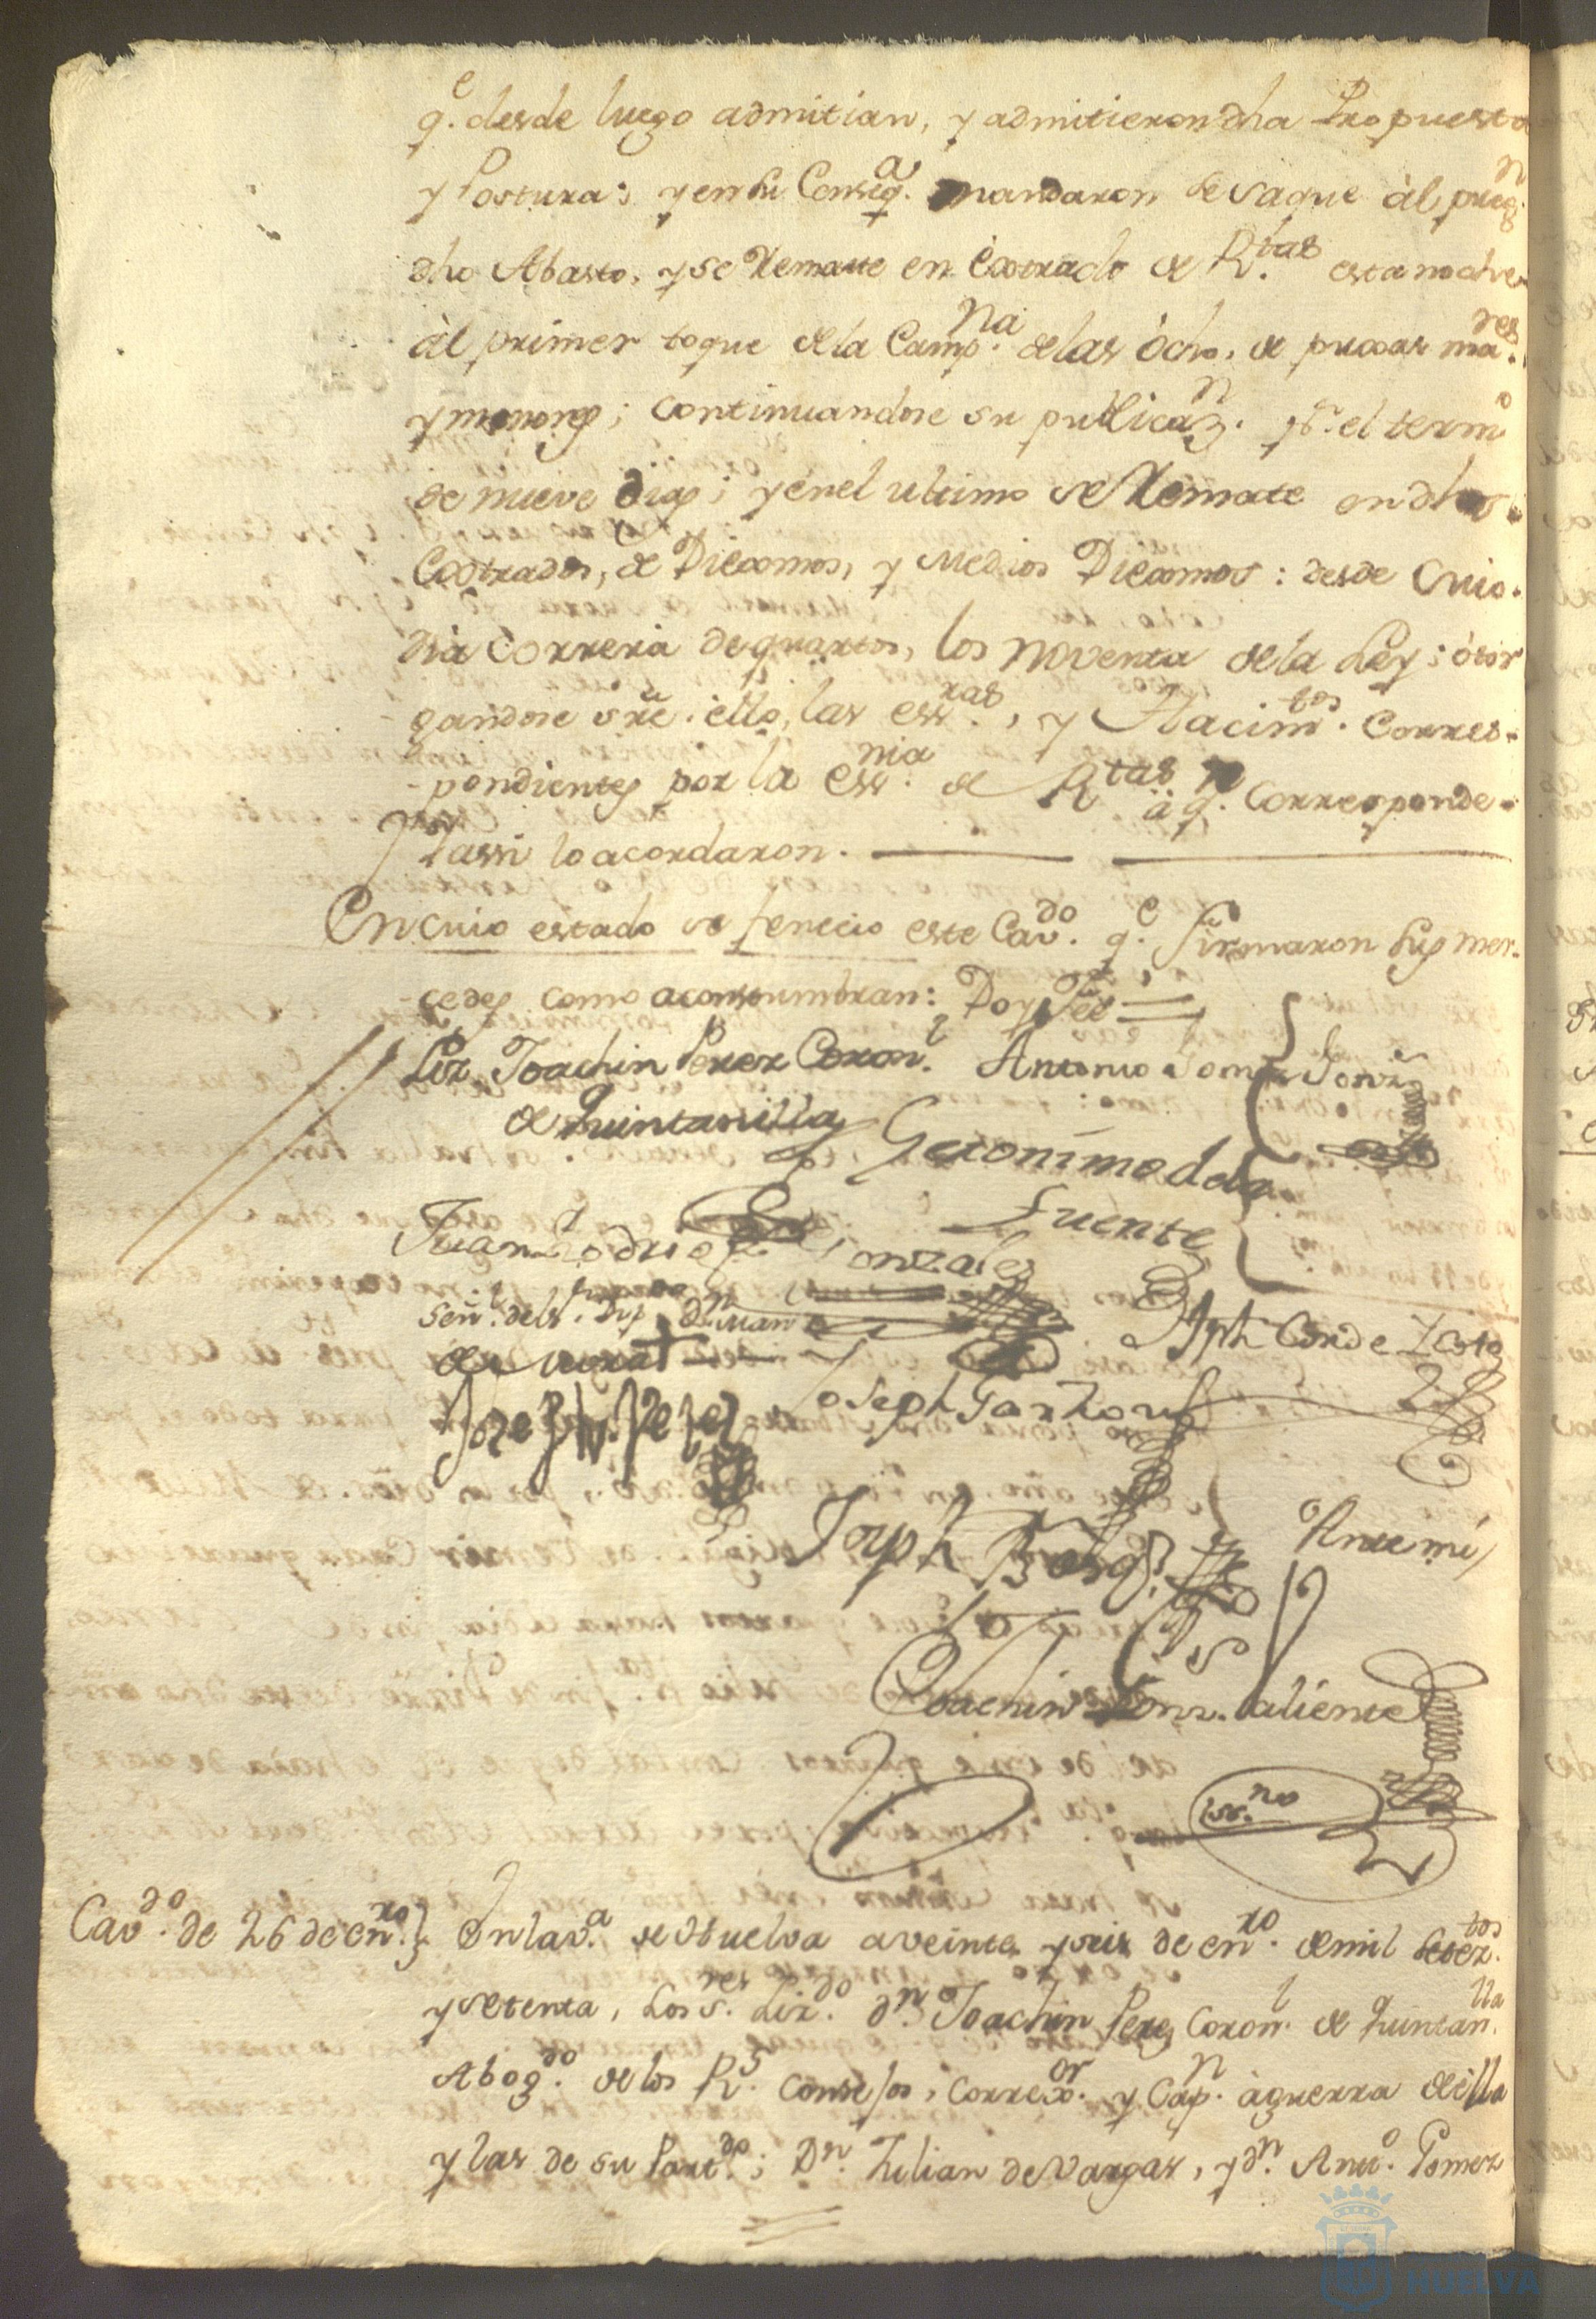 q.e desde luego admitian, y admitieron dha Propuesta
y Postura: y en su Conseq.a mandaron se saque àl preg.n
dho Abasto, y se Remate en Extrado de R.tas esta noche
àl primer toque de la Camp.na de las òcho, de pujas ma.res
y menores; continuandose su publicaz.n p.r el term.o
de nueve dias; y en el ultimo se Remate en dhos
Extrados, de Diexmos, y Medios Diexmos: desde Cuio
dia Correria de quartos, los noventa de la Ley; òtor
gandose sre. ello, las ess.ras, y Hacim.tos Corres-
pondientes por la ess.nia de R.tas à q.n Corresponde-
Y assi lo acordaron.
En cuio estado se fenecio este Cav.do q.e firmaron sus mer-
cedes como acostumbran: Doy Fee=
Liz. Joachin Perez Coron.l Antonio Gomez
de Quintanilla
Geronimo de la
Fuente
Juan Rodrig Gonzales
Señ.l del S. d.n Man
de Mora †
Jph Conde
Joseph Garzon
Jozeph Perez
Joseph
Ante mi
Joachin Gonz. Valiente
ess.no
Cav.do de 26 de en.ro} En la v.a de Huelva a veinte y seis de en.ro de mil setez.tos
y setenta, Los s.res Liz.do d.n Joachin Perez Coron.l de Quintan.lla
Abog.do de los R.s Consejos, Correx.or y Cap.n à guerra de ella
y las de su Part.do; D.n Julian de Vargas, y d.n Ant.o Gomez
HUELVA